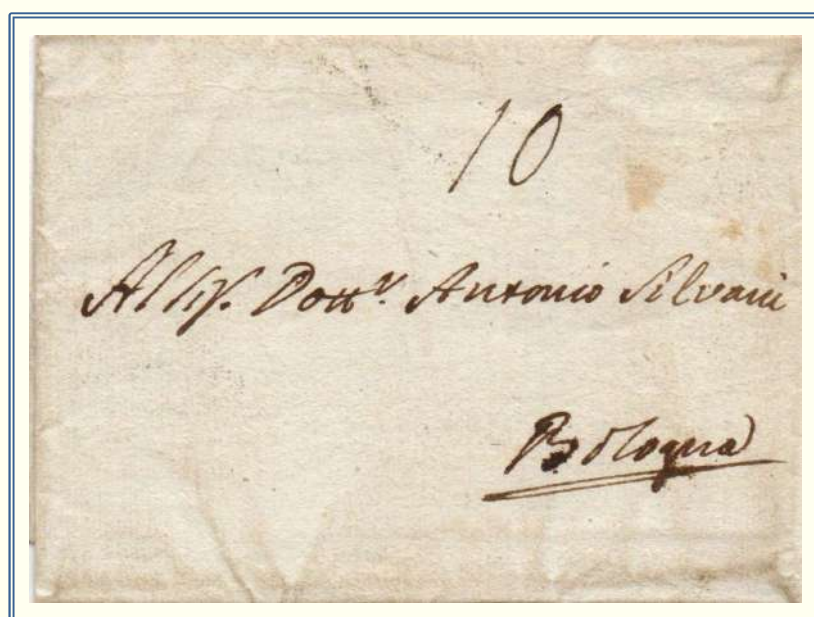 10
All Sig. Dottr Antonio Silvani
Bologna